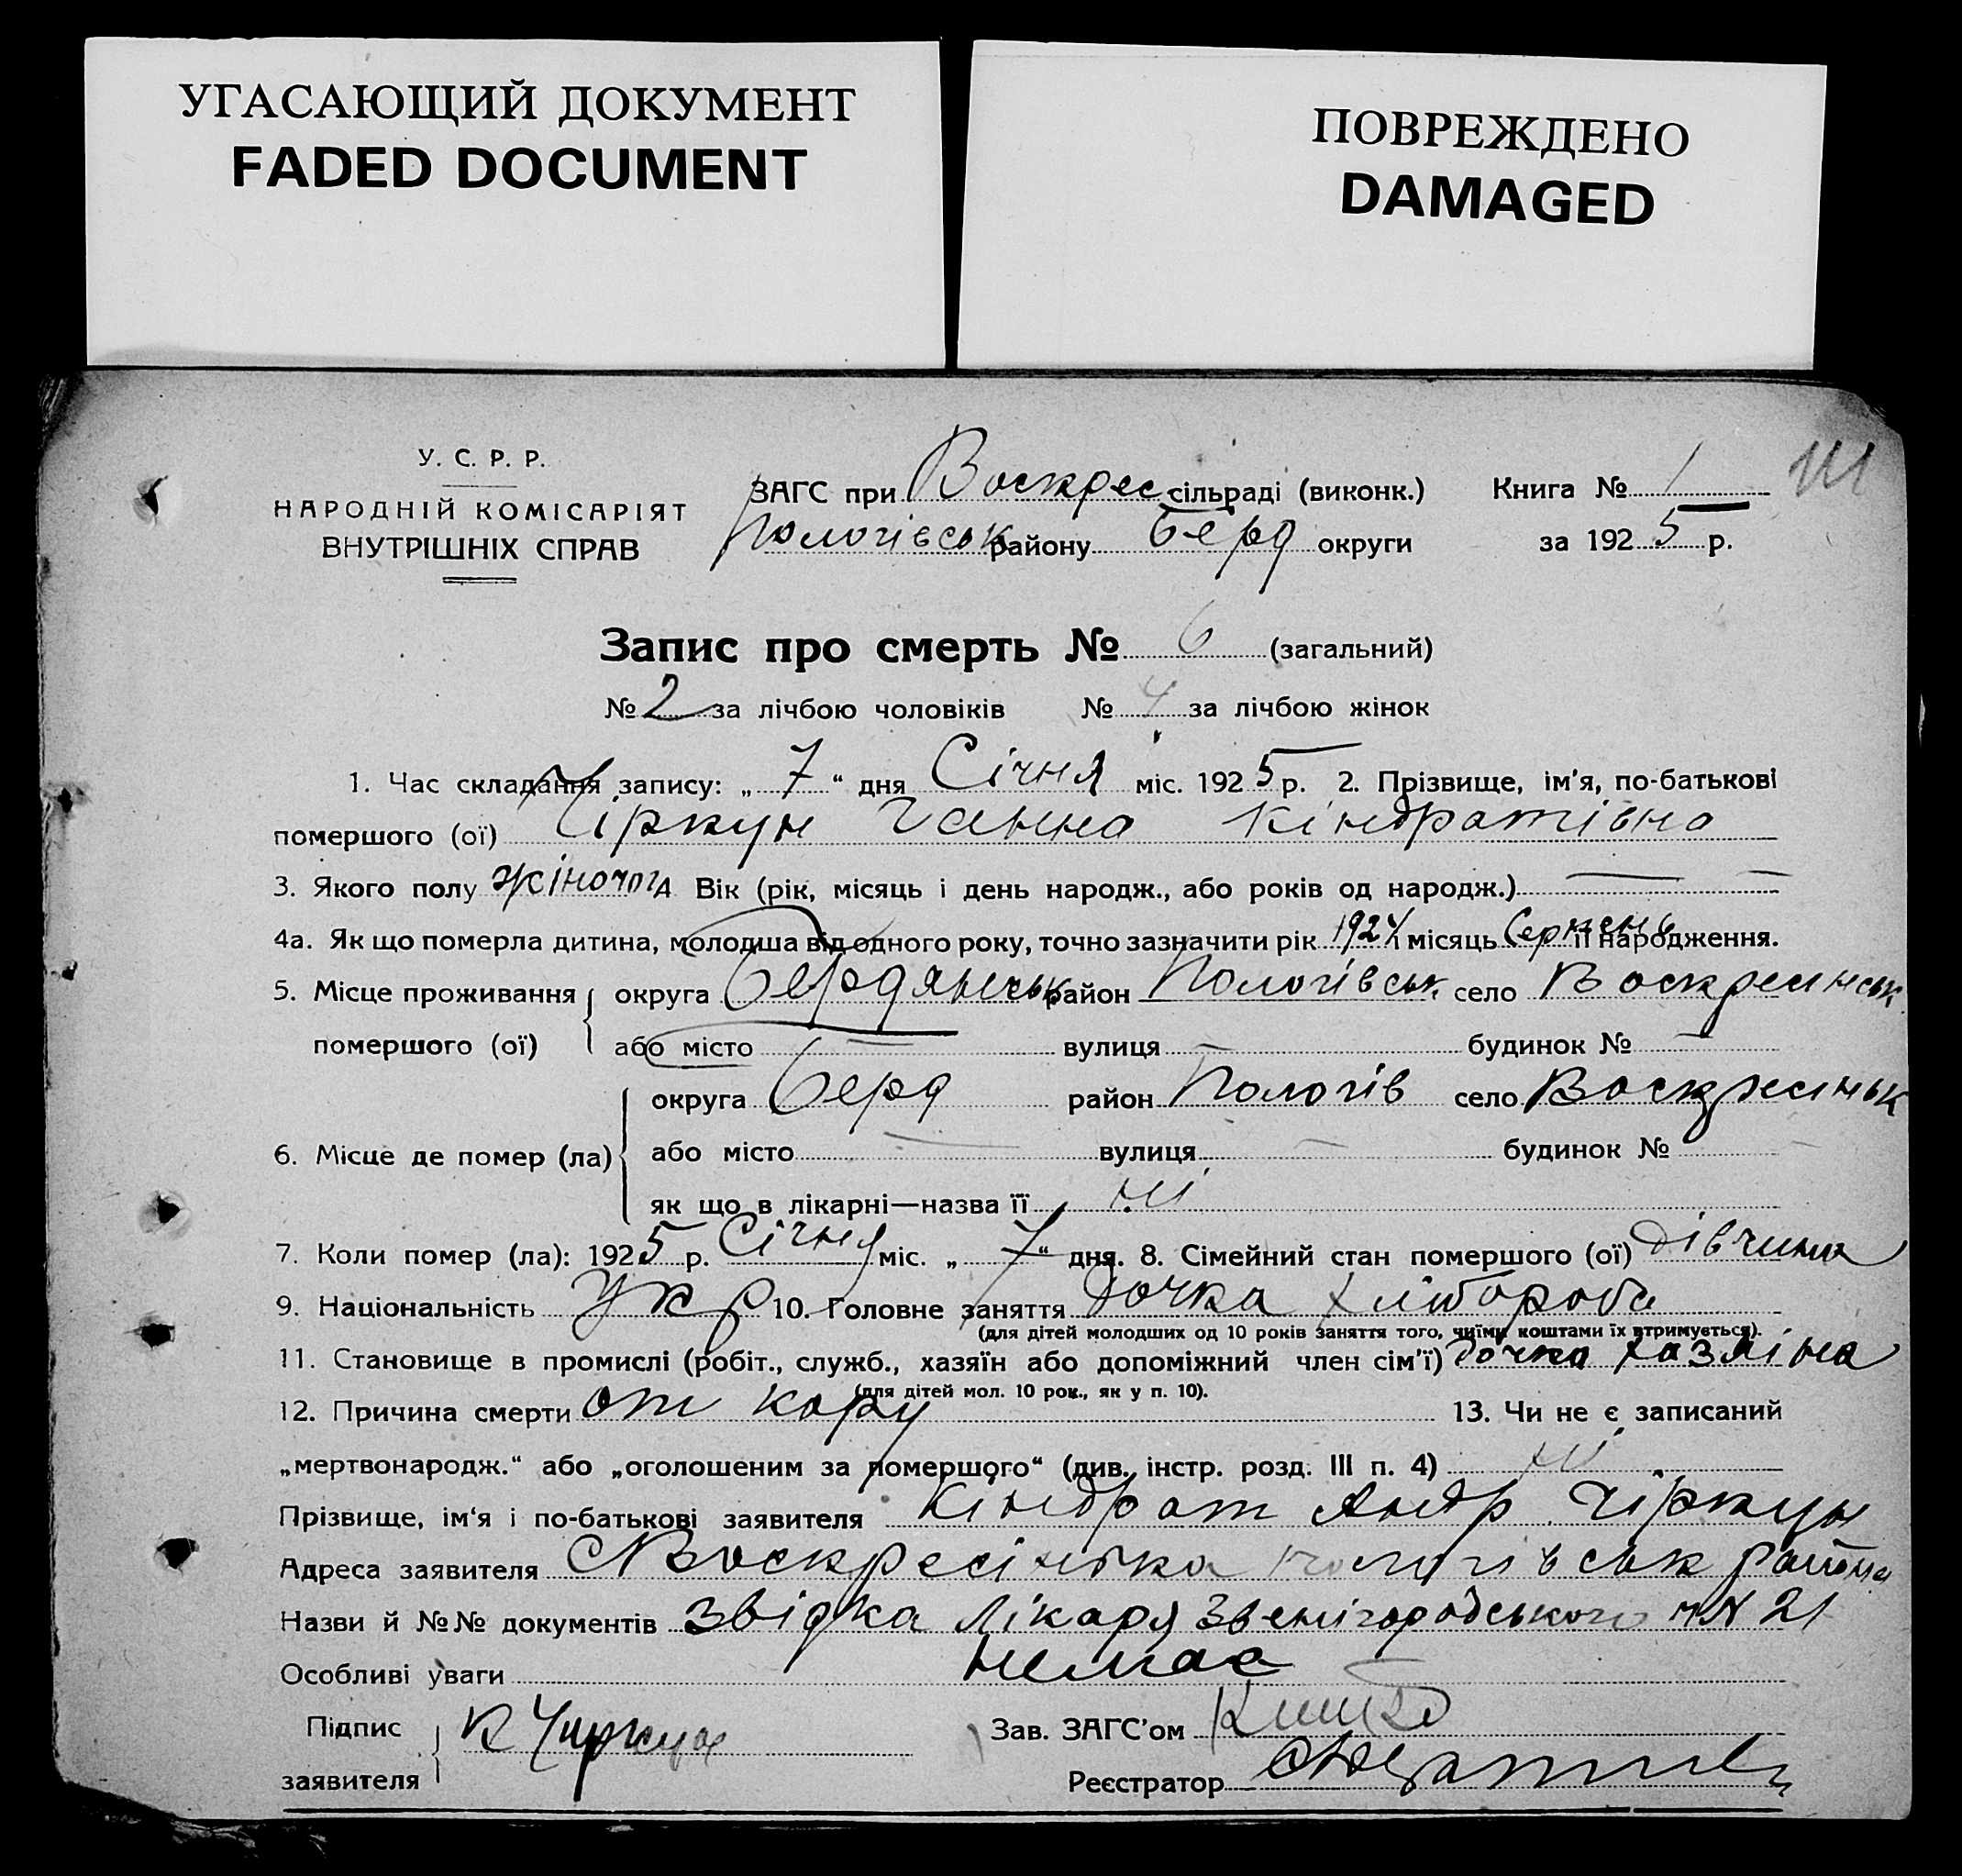 УГАСАЮЩИЙ ДОКУМЕНТ
FADED DOCUMENT
ПОВРЕЖДЕНО
DAMAGED
У. С. Р. Р.
НАРОДНІЙ КОМІСАРІЯТ
ВНУТРІШНІХ СПРАВ
ЗАГС при Воскрес сільраді (виконк.)
Пологівськ району Берд округи
Книга № 1
за 1925 р.
Запис про смерть № 6 (загальний)
№ 2 за лічбою чоловіків № 4 за лічбою жінок
1. Час складання запису: „ 7 “ дня Січня міс. 1925 р. 2. Прізвище, ім’я, по-батькові
помершого (ої) Чіркун Ганна Кіндратівна
3. Якого полу жіночого Вік (рік, місяць і день народж., або років од народж.) —
4а. Як що померла дитина, молодша від одного року, точно зазначити рік 1924 і місяць Серпень її народження.
5. Місце проживання помершого (ої) округа Бердянськ район Пологівськ село Воскресинськ
або місто — вулиця — будинок № —
6. Місце де помер (ла) округа Берд район Пологів село Воскресиньк
або місто — вулиця — будинок № —
як що в лікарні—назва її ні
7. Коли помер (ла): 1925 р. Січня міс. „ 7 “ дня. 8. Сімейний стан помершого (ої) дівчина
9. Національність Укр 10. Головне заняття дочка хлібороба
(для дітей молодших од 10 років заняття того, чиїми коштами їх втримується).
11. Становище в промислі (робіт., служб., хазяїн або допоміжний член сім’ї) дочка хазяіна
(для дітей мол. 10 рок., як у п. 10).
12. Причина смерти от кору 13. Чи не є записаний
„мертвонародж.“ або „оголошеним за помершого“ (див. інстр. розд. III п. 4) ні
Прізвище, ім‘я і по-батькові заявителя Кіндрат Андр Чіркун
Адреса заявителя Воскресінка Пологівськ района
Назви й №№ документів Звідка Лікаря Звенігородського № 21
Особливі уваги немає
Підпис заявителя К Чиркун
Зав. ЗАГС’ом
Реєстратор